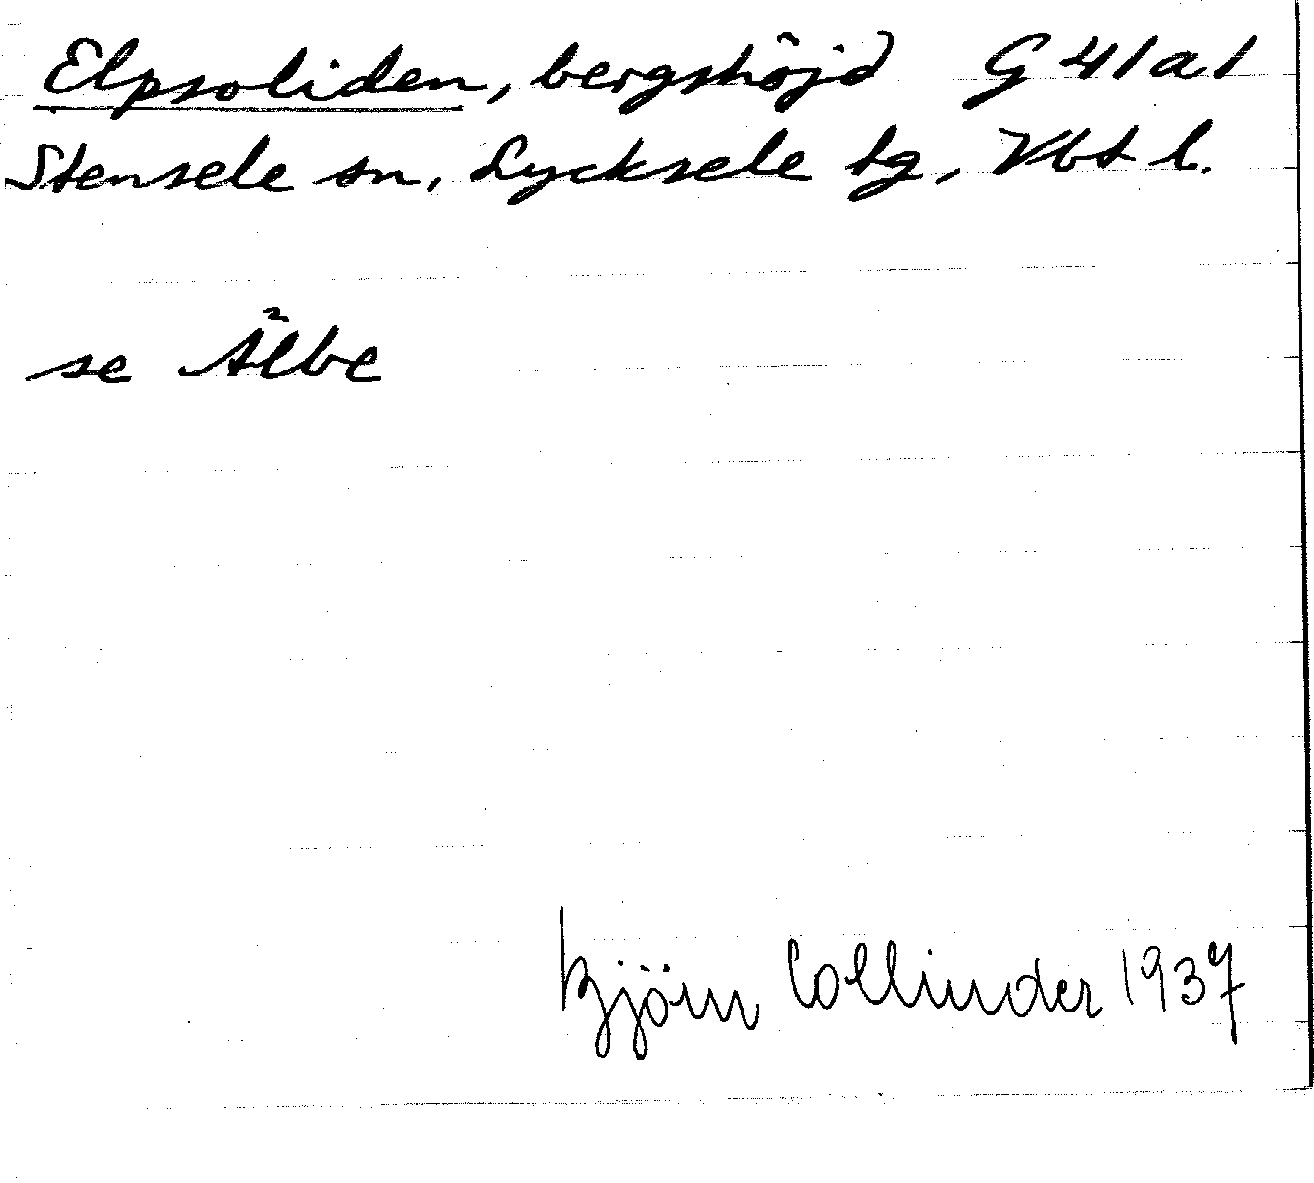 Elpsoliden, bergshöjd G 41 a 1
Stensele sn, Lycksele tg, Vbt l.
se Älbe
Björn Collinder 1937